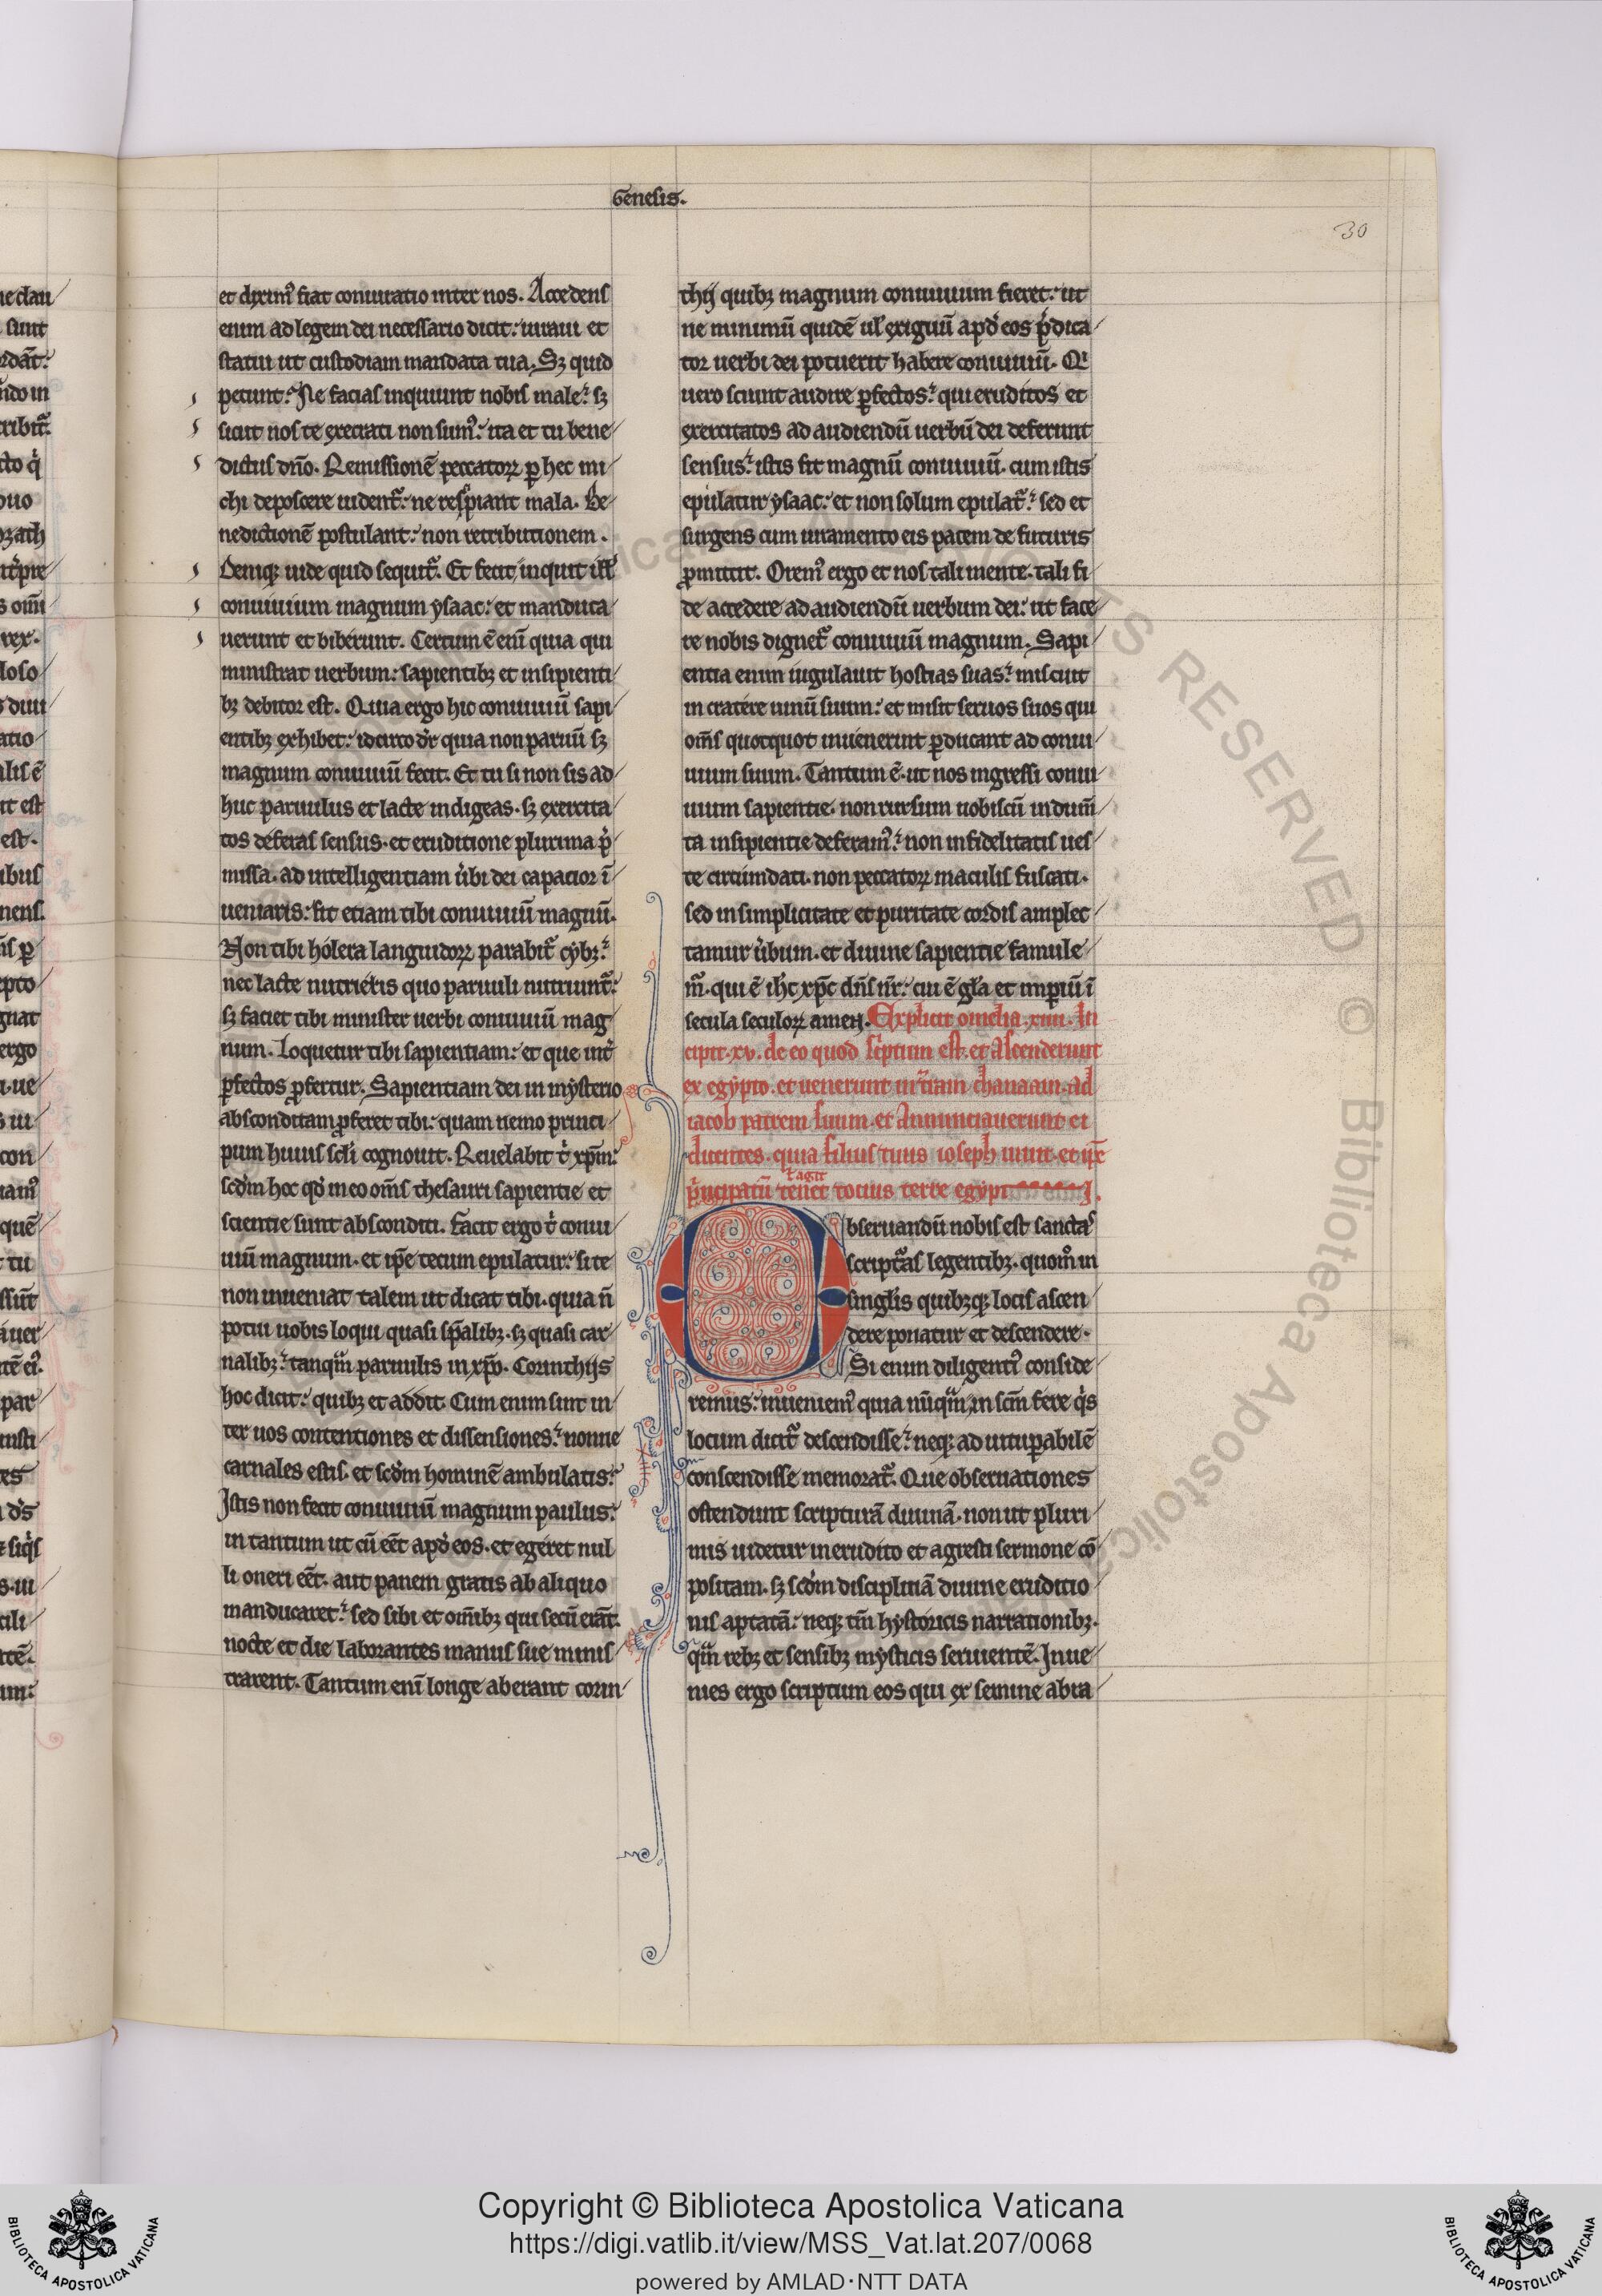 Genesis.
30
et dixim᷒ fiat coniuratio inter nos. Accedens
enim ad legem dei necessario dicit: iuraui et
statui ut custodiam mandata tua. Sꝫ quid
petunt? Ne facias inquiunt nobis male: sꝫ
sicut nos te execrati non sum᷒: ita et tu bene
dictus dño. Remissionē peccatoꝝ ꝑ hec mi
chi deposcere uident᷑: ne respiant mala. Be
nedictionē postulant: non retributionem.
Deniqꝫ uide quid sequit᷑. Et fecit inquit ill̃
conuiuium magnum ysaac: et manduca
uerunt et biberunt. Certum ē eni quia qui
ministrat uerbum: sapientibꝫ et insipienti
bꝫ debitor est. Quia ergo hic conuiuiū sapi
entibꝫ exhibet: idcirco dr̃ quia non paruū sꝫ
magnum conuiuiū fecit. Et tu si non sis ad
huc paruulus et lacte indigeas. sꝫ exercita
tos deferas sensus. et eruditione plurima p̄
missa. ad intelligentiam ủbi dei capacior ī
ueniaris: fit etiam tibi conuiuiū magnū.
Non tibi holera languidoꝝ parabit᷑ cybꝫ:
nec lacte nutrieris quo paruuli nutriunt᷑:
sꝫ faciet tibi minister uerbi conuiuiū mag
num. Loquetur tibi sapientiam: et que int᷑
ꝑfectos ꝓfertur. Sapientiam dei in mysterio
absconditam ꝓferet tibi: quam nemo princi
pum huius scl̃i cognouit. Reuelabit t̉ xp̄m:
scd̃m hoc qd̃ in eo om̃s thesauri sapientie et
scientie sunt absconditi. Facit ergo t̉ conui
uiū magnum. et ip̃e tecum epulatur: si te
non inueniat talem ut dicat tibi. quia ñ
potui uobis loqui quasi sp̃alibꝫ. sꝫ quasi car
nalibꝫ: tanq̃m paruulis in xp̄o. Corinthijs
hoc dicit: quibꝫ et addit. Cum enim sint in
ter uos contentiones et dissensiones: nonne
carnales estis. et scd̃m hominē ambulatis?
Istis non fecit conuiuiū magnum paulus:
in tantum ut cū eēt apd̉ eos. et egeret nul
li oneri eēt. aut panem gratis ab aliquo
manducaret: sed sibi et om̃ibꝫ qui secū erāt.
nocte et die laborantes manus sue minis
trarent. Tantum enī longe aberant corin
thij quibꝫ magnum conuiuium fieret: ut
ne minimū quidē ul̃ exiguū apd̉ eos p̄dica
tor uerbi dei potuerit habere conuiuiū. Qi
uero sciunt audire ꝑfectos: qui eruditos et
exercitatos ad audiendū uerbū dei deferunt
sensus: istis fit magnū conuiuiū. cum istis
epulatur ysaac: et non solum epulat᷑: sed et
surgens cum iuramento eis pacem de futuris
ꝓmittit. Orem᷒ ergo et nos tali mente. tali fi
de accedere ad audiendū uerbum dei: ut face
re nobis dignet᷑ conuiuiū magnum. Sapi
entia enim iugulauit hostias suas: miscuit
in cratere uinū suum: et misit seruos suos qui
om̃s quotquot inuenerint ꝑducant ad conui
uium suum. Tantum ē. ut nos ingressi conui
uium sapientie. non rursum nobiscū indum̃
ta insipientie deferam᷒: non infidelitatis ues
te circumdati. non peccatoꝝ maculis fuscati.
sed in simplicitate et puritate cordis amplec
tamur ủbum. et diuine sapientie famule
m᷑. qui ē ih̃c xp̄c dñs nr̃: cui ē gl̃a et imꝑiū ī
secula seculoꝝ amen. Explicit omelia .xiiii. In
cipit .xv. de eo quod sc̃ptum est. et ascenderunt
ex egypto. et uenerunt in t̃ram chanaan. ad
iacob patrem suum. et annunciauerunt ei
dicentes. quia filius tuus ioseph uiuit. et ip̃e
p̄ncipatū tenet totius terre egypti.
Obseruandū nobis est sanctas
script᷑as legentibꝫ. quom̉ in
singl̃is quibꝫqꝫ locis ascen
dere ponatur et descendere.
Si enim diligenti᷒ conside
remus: inueniem᷒ quia nūq̃m in scm̃ fere q̉s
locum dicit᷑ descendisse: neqꝫ ad uituꝑabilē
conscendisse memorat᷑. Que obseruationes
ostendunt scripturā diuinā. non ut pluri
mis uidetur inerudito et agresti sermone cō
positam. sꝫ scd̃m disciplinā diuine eruditio
nis aptatā: neqꝫ tm̃ hystoricis narrationibꝫ.
q̃m rebꝫ et sensibꝫ mysticis seruientē. Inue
nies ergo scriptum eos qui ex semine abra
Copyright © Biblioteca Apostolica Vaticana
https://digi.vatlib.it/view/MSS_Vat.lat.207/0068
powered by AMLAD·NTT DATA
BIBLIOTECA APOSTOLICA VATICANA
BIBLIOTECA APOSTOLICA VATICANA